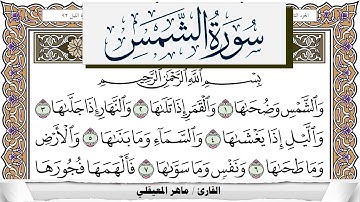 سُورَةُ الشَّمْسِ
بِسْمِ اللَّهِ الرَّحْمَٰنِ الرَّحِيمِ
وَالشَّمْسِ وَضُحَىٰهَا ١ وَالْقَمَرِ إِذَا تَلَىٰهَا ٢ وَالنَّهَارِ إِذَا جَلَّىٰهَا ٣
وَاللَّيْلِ إِذَا يَغْشَىٰهَا ٤ وَالسَّمَاءِ وَمَا بَنَىٰهَا ٥ وَالْأَرْضِ
وَمَا طَحَىٰهَا ٦ وَنَفْسٍ وَمَا سَوَّىٰهَا ٧ فَأَلْهَمَهَا فُجُورَهَا
القارئ / ماهر المعيقلي